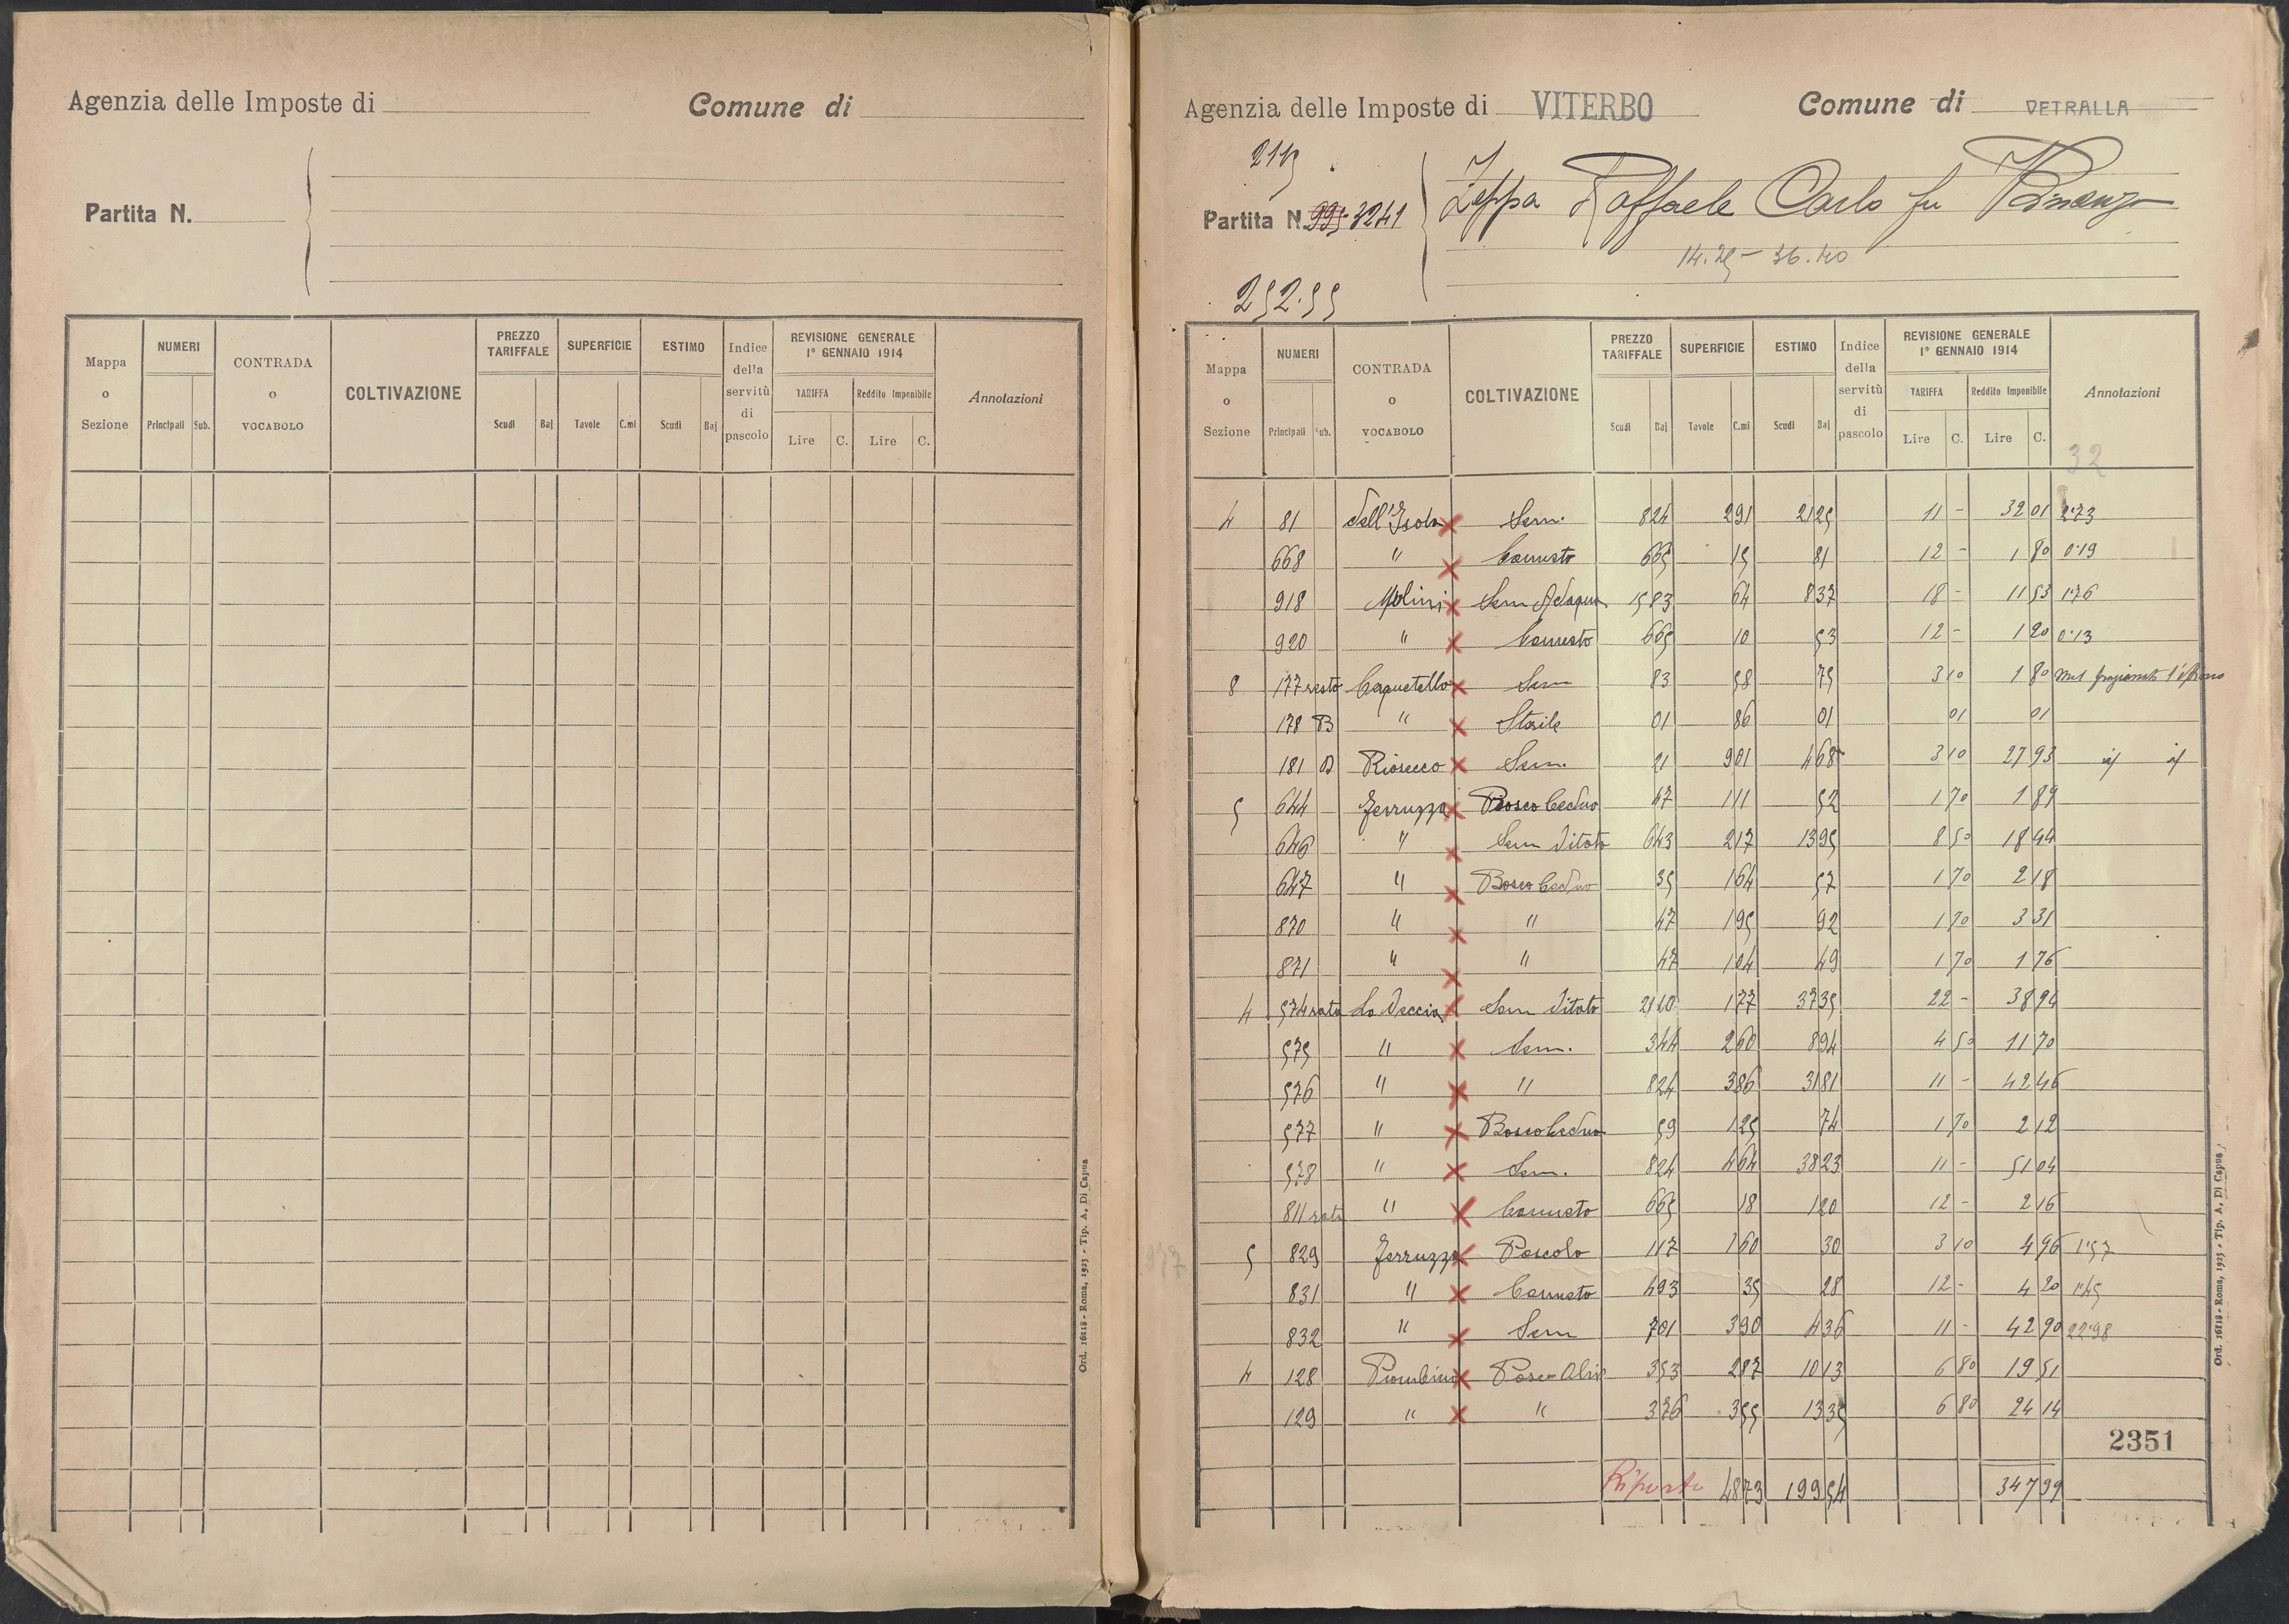 Agenzia delle Imposte di
Comune di
Partita N.
Mappa o Sezione
NUMERI
Principali Sub.
CONTRADA o VOCABOLO
COLTIVAZIONE
PREZZO TARIFFALE
Scudi Baj
SUPERFICIE
Tavole C.mi
ESTIMO
Scudi Baj
Indice della servitù di pascolo
REVISIONE GENERALE
1° GENNAIO 1914
TARIFFA
Lire C.
Reddito Imponibile
Lire C.
Annotazioni
Ord. 16118 - Roma, 1923 - Tip. A. Di Capua
Agenzia delle Imposte di VITERBO
Comune di VETRALLA
Partita N. 995 3241
Zeppa Raffaele Carlo fu
252.55
Mappa o Sezione
NUMERI
Principali Sub.
CONTRADA o VOCABOLO
COLTIVAZIONE
PREZZO TARIFFALE
Scudi Baj
SUPERFICIE
Tavole C.mi
ESTIMO
Scudi Baj
Indice della servitù di pascolo
REVISIONE GENERALE
1° GENNAIO 1914
TARIFFA
Lire C.
Reddito Imponibile
Lire C.
Annotazioni
32
4 81 dell'Isola Sem. 8 24 2 91 21 25 11 - 32 01 2.73
668 " Canneto 6 65 15 81 12 - 1 80 0.19
918 Molini Sem Adaqua 15 83 64 8 37 18 - 11 53 1.76
920 " Canneto 6 65 10 53 12 - 1 20 0.13
8 177 resto Cerquetello Sem 83 58 75 3 10 1 80
178 B " Sterile 01 86 01 01 01
181 Riosecco Sem. 21 9 01 4 68 3 10 27 93
5 644 Bosco Ceduo 47 1 11 52 1 70 1 89
646 " Sem Vitato 6 43 2 17 13 95 8 50 18 44
647 " Bosco Ceduo 35 1 64 57 1 70 2 18
870 " " 47 1 95 92 1 70 3 31
871 " " 47 1 04 49 1 70 1 76
4 574 rata La Veccia Sem Vitato 21 10 1 77 37 35 22 - 38 94
575 " Sem. 3 44 2 60 8 94 4 50 11 70
576 " " 8 24 3 86 31 81 11 - 42 46
577 " Bosco Ceduo 59 1 25 74 1 70 2 12
578 " Sem. 8 24 4 64 38 23 11 - 51 04
811 rata " Canneto 6 65 18 1 20 12 - 2 16
5 829 Pascolo 1 17 1 60 30 3 10 4 96 1.57
831 " Canneto 4 93 35 28 12 - 4 20 1.45
832 " Sem 7 01 3 90 4 36 11 - 42 90 22.98
4 128 Piombino 3 53 2 87 10 13 6 80 19 51
129 " " 3 76 3 55 13 35 6 80 24 14
2351
Riporto 48 73 199 54 347 99
Ord. 16118 - Roma, 1923 - Tip. A. Di Capua